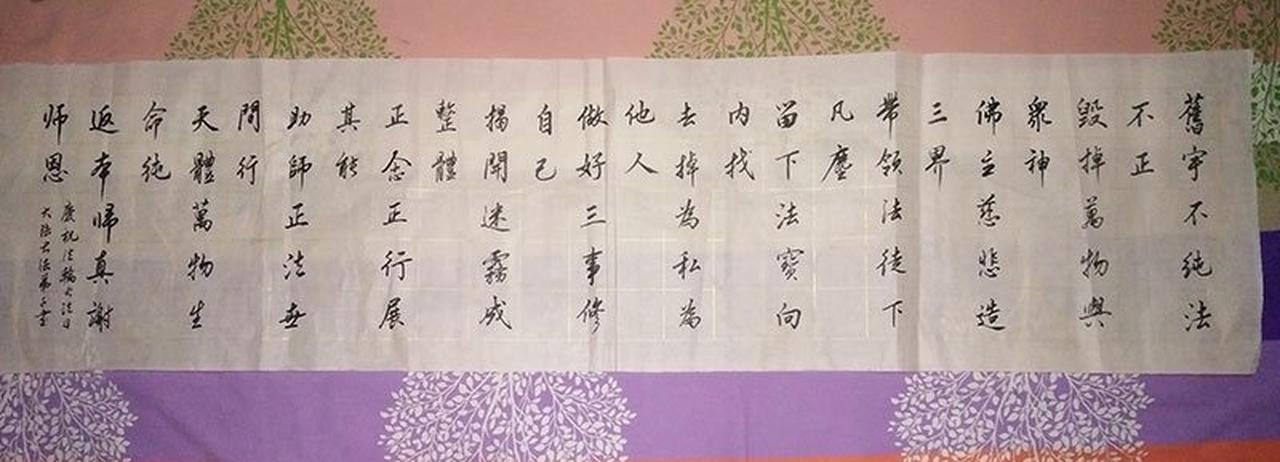 舊宇不純法
不正
毀掉萬物與
眾神
佛主慈悲造
三界
帶領法徒下
凡塵
留下法寶向
內找
去掉為私為
他人
做好三事修
自己
揭開迷霧成
整體
正念正行展
其能
助師正法世
間行
天體萬物生
命純
返本歸真謝
师恩
慶祝法輪大法日
大陸大法弟子書